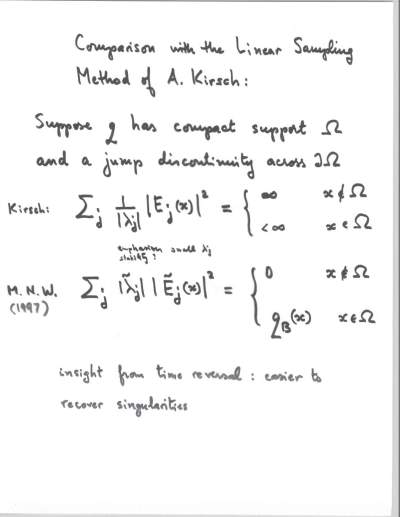 Comparison with the Linear Sampling
Method of A. Kirsch:
Suppose q has compact support Ω
and a jump discontinuity across ∂Ω
Kirsch: Σ_j 1/|λ_j| |E_j(x)|² = { ∞ x∉Ω
<∞ x∈Ω
emphasises small λ_j
stability?
M.N.W. Σ_j |λ̃_j| |Ẽ_j(x)|² = { 0 x∉Ω
(1997) q_B(x) x∈Ω
insight from time reversal: easier to
recover singularities